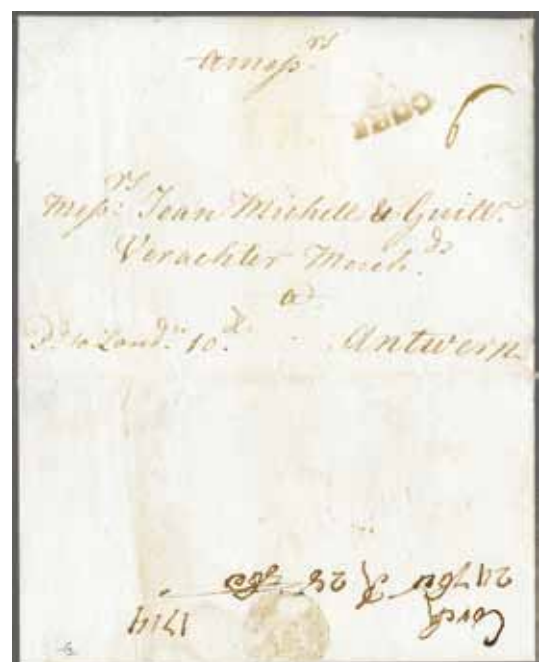 A Mess.rs
CORK
6
Mess.rs Jean Michell & Guill.m
Verachter March.ds
a
P.d to Lond.n 10.d Antwerp
Corck
1714